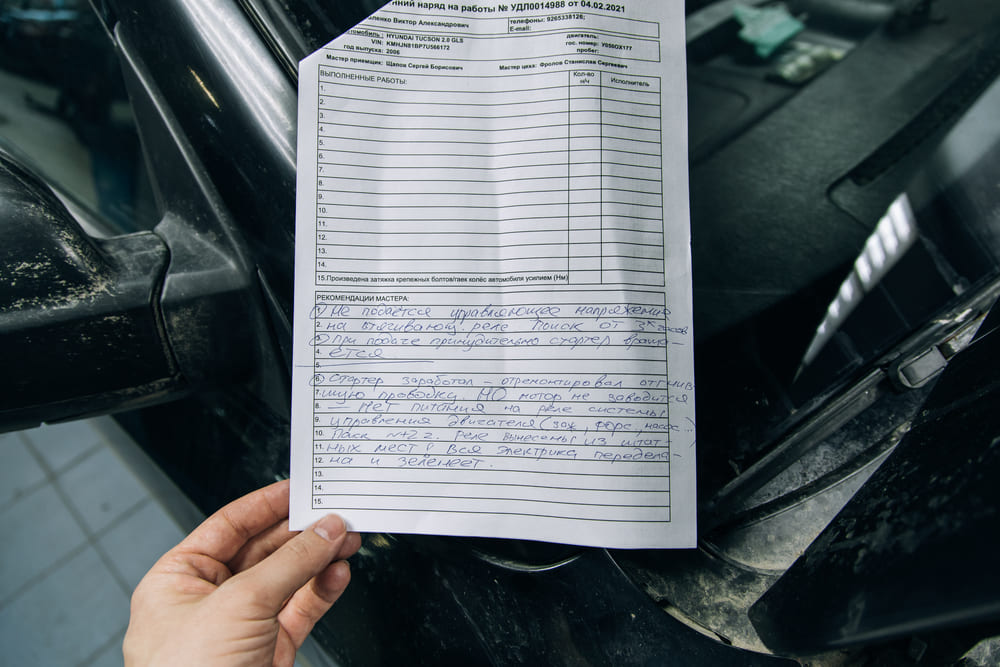 нний наряд на работы № УДЛ0014988 от 04.02.2021
ленко Виктор Александрович
телефоны: 9265338126;
E-mail:
томобиль: HYUNDAI TUCSON 2.0 GLS
двигатель:
VIN: KMHJN81BP7U566172
гос. номер: У050ОХ177
год выпуска: 2006
пробег:
Мастер приемщик: Щапов Сергей Борисович
Мастер цеха: Фролов Станислав Сергеевич
ВЫПОЛНЕННЫЕ РАБОТЫ:
Кол-во н/ч
Исполнитель
1.
2.
3.
4.
5.
6.
7.
8.
9.
10.
11.
12.
13.
14.
15.Произведена затяжка крепежных болтов/гаек колёс автомобиля усилием (Нм)
РЕКОМЕНДАЦИИ МАСТЕРА:
1) Не подаётся управляющее напряжение
2. на втягивающ. реле Поиск от 3х часов
3) При подаче принудительно стартер враща-
4. ется
5.
6. Стартер заработал – отремонтировал отгнив-
7. шую проводку. НО мотор не заводится
8. — Нет питания на реле системы
9. управления двигателя (заж, форс, насос...)
10. Поиск ≈+2 ч. Реле вынесены из штат-
11. ных мест и вся электрика передела-
12. на и зеленеет.
13.
14.
15.